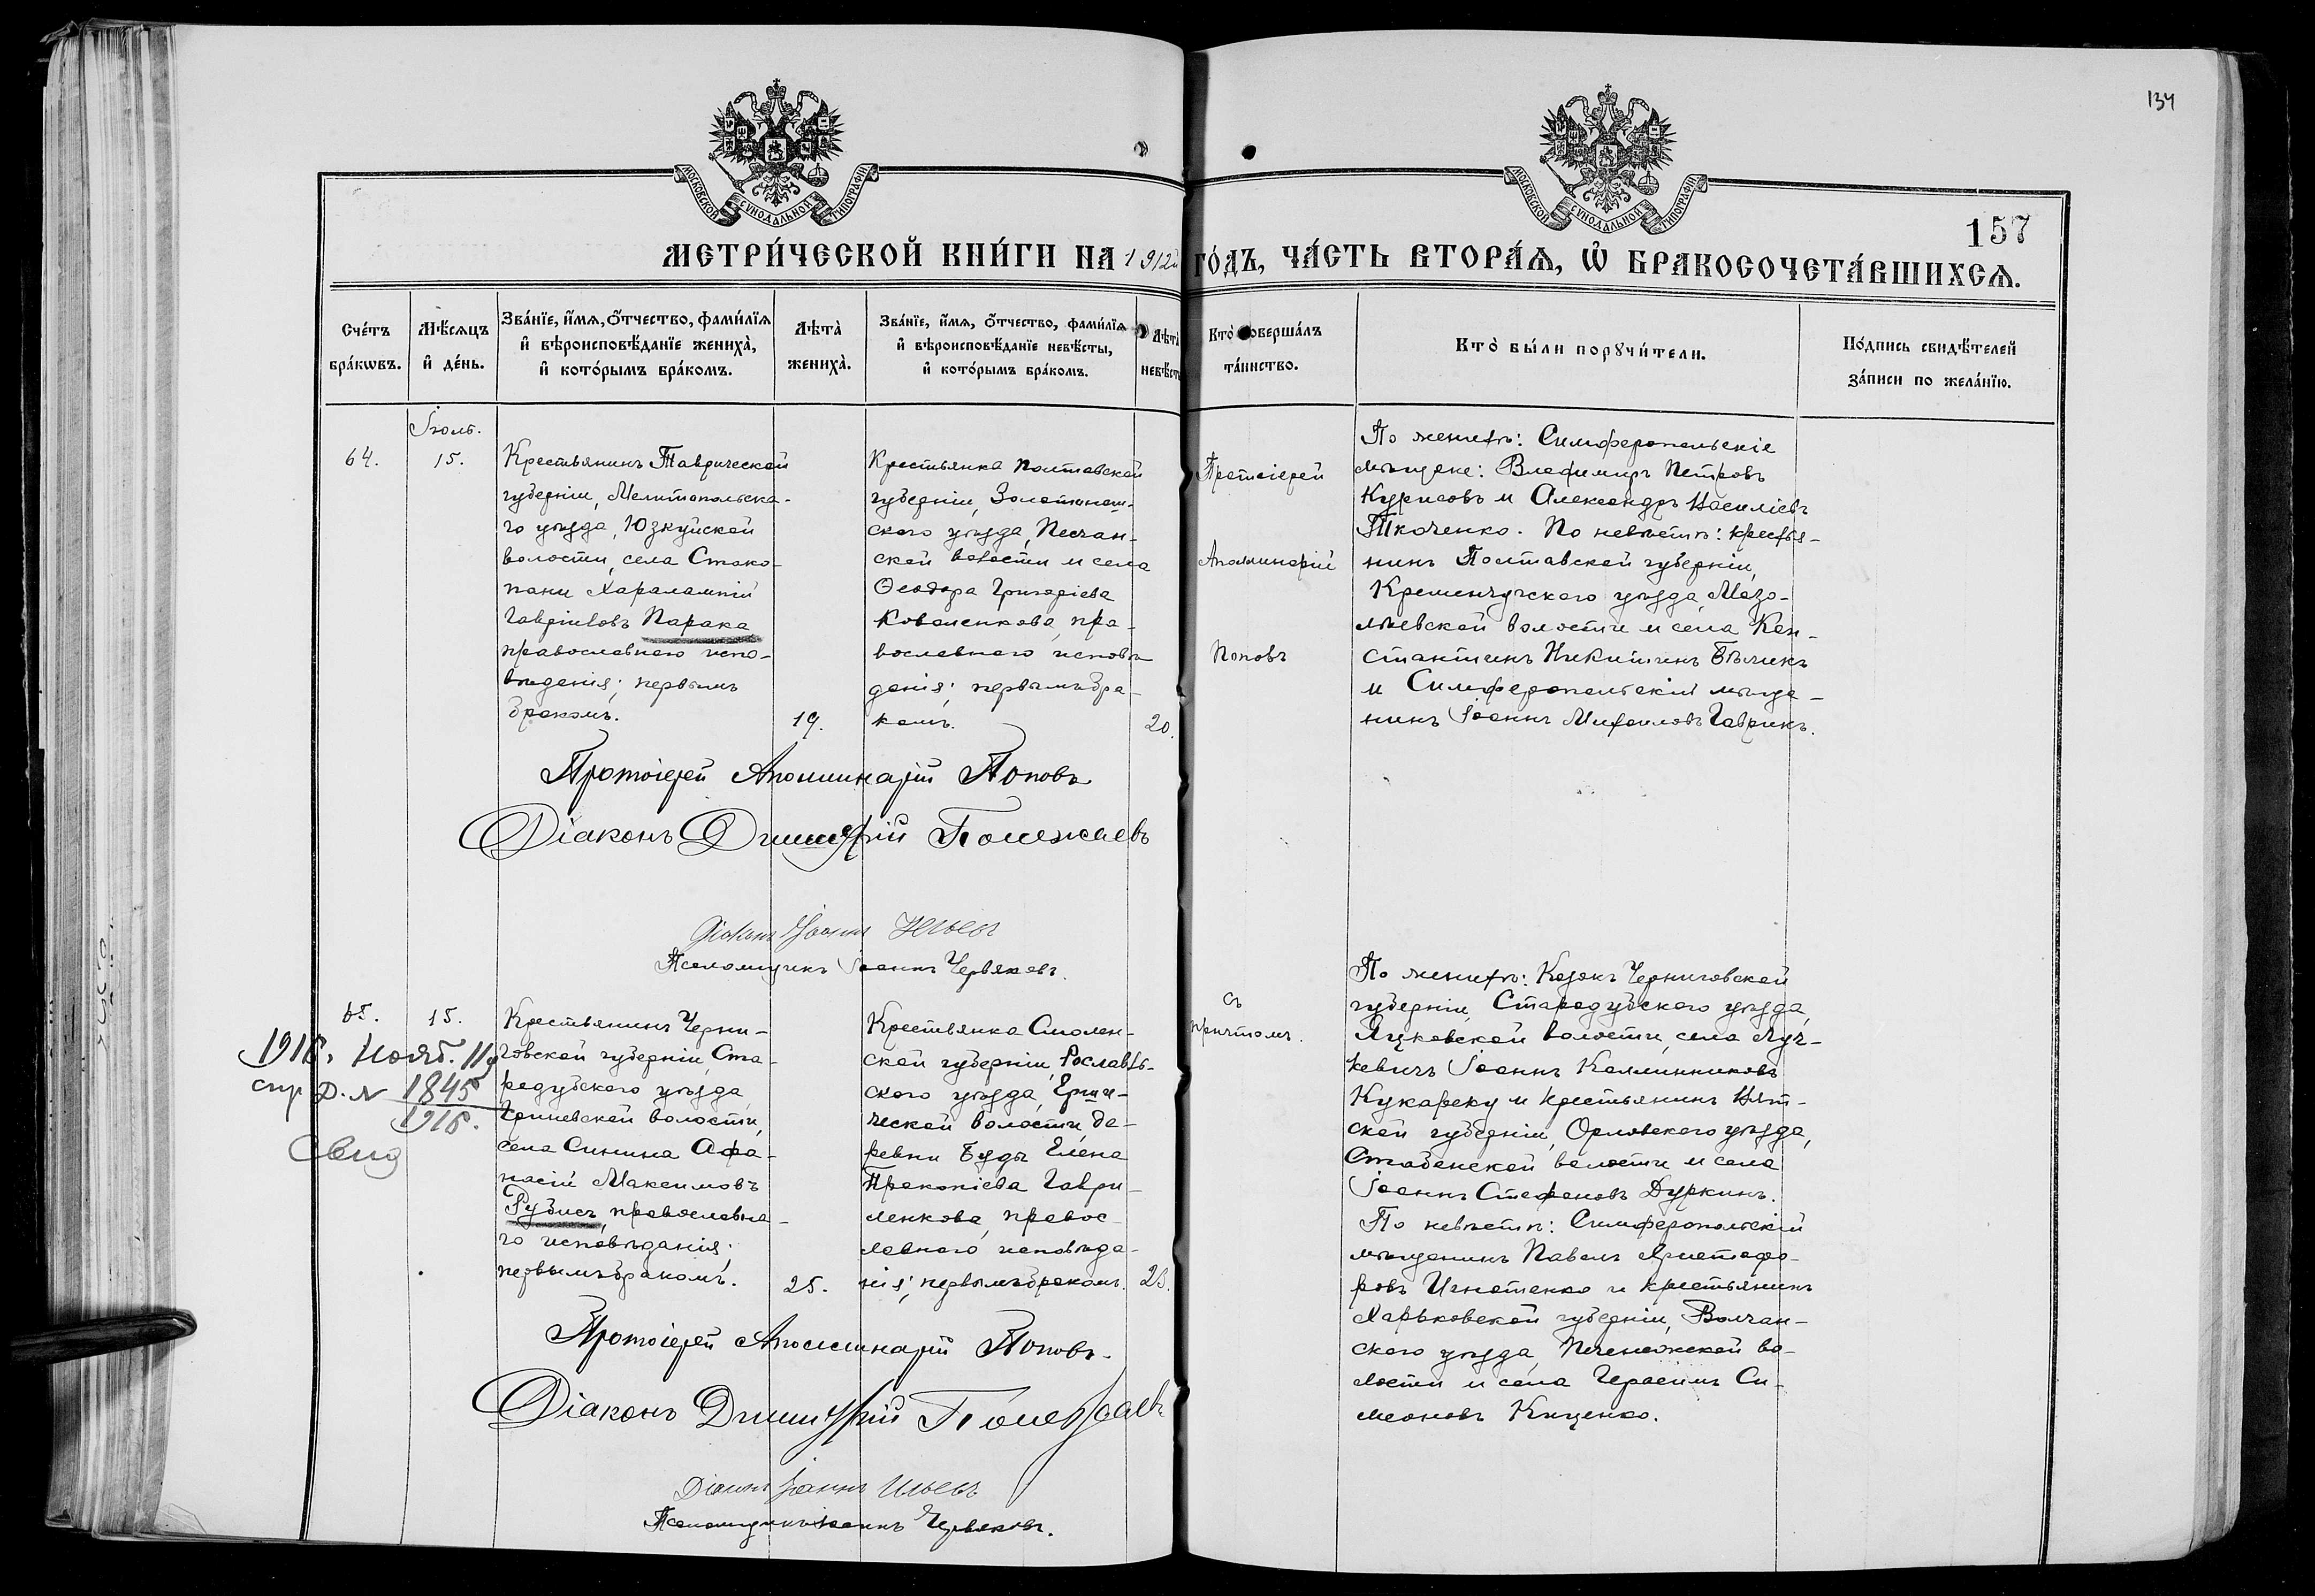 134
МОСКОВСКОЙ СУНОДАЛЬНОЙ ТИПОГРАФІИ
МОСКОВСКОЙ СУНОДАЛЬНОЙ ТИПОГРАФІИ
157
МЕТРИ́ЧЕСКОЙ КНИ́ГИ НА 1912й ГО́ДЪ, ЧА́СТЬ ВТОРА́Я, Ѡ БРАКОСОЧЕТА́ВШИХСЯ.
Сче́тъ бра́кѡвъ.
Мѣ́сяцъ и҆ де́нь.
Зва́нїе, и҆́мя, ѻ҆́тчество, фами́лїя
и҆ вѣроисповѣ́данїе жениха̀,
и҆ кото́рымъ бра́комъ.
Лѣта̀ жениха̀.
Зва́нїе, и҆́мя, ѻ҆́тчество, фами́лїя
и҆ вѣроисповѣ́данїе невѣ́сты,
и҆ кото́рымъ бра́комъ.
Лѣта̀ невѣ́сты
Кто̀ соверша́лъ
та́инство.
Кто̀ бы́ли порꙋчи́тели.
По́дпись свидѣ́телей
за́писи по жела́нїю.
Іюль.
64.
15.
Крестьянинъ Таврической
губерніи, Мелитопольска-
го уѣзда, Юзкуйской
волости, села Стоко-
пани Харалампій
Гавріиловъ Парака
православнаго испо-
вѣданія; первымъ
бракомъ.
19.
Крестьянка Полтавской
губерніи, Золотонош-
скаго уѣзда, Песчан-
ской волости и села
Ѳеодора Григоріева
Коваленкова, пра-
вославнаго исповѣ-
данія; первымъ бра-
комъ.
20.
Протоіерей
Аполлинарій
Поповъ
По женихѣ: Симферопольскіе
мѣщане: Владимиръ Петровъ
Курисовъ и Александръ Василіевъ
Ткаченко. По невѣстѣ: крестья-
нинъ Полтавской губерніи,
Кременчугскаго уѣзда, Мозо-
лѣевской волости и села Кон-
стантинъ Никитинъ Бѣликъ
и Симферопольскій мѣща-
нинъ Іоаннъ Михаиловъ Гаврикъ.
Протоіерей Аполлинарій Поповъ
Діаконъ Димитрій Полежаевъ
Діаконъ Іоаннъ Ильевъ
Псаломщикъ Іоаннъ Червяковъ.
65.
15.
1916. Нояб. 11
спр Д. N 1845
1916.
Свид
Крестьянинъ Черни-
говской губерніи, Ста-
родубскаго уѣзда,
волости,
села Синина Афа-
насій Максимовъ
Рубисъ, православна-
го исповѣданія;
первымъ бракомъ.
25.
Крестьянка Смолен-
ской губерніи, Рославль-
скаго уѣзда, Ерши-
ческой волости, де-
ревни Буды Елена
Прокопіева Гаври-
ленкова, правос-
лавнаго исповѣда-
нія; первымъ бракомъ.
съ
причтомъ.
По женихѣ: Козакъ Черниговской
губерніи, Стародубскаго уѣзда,
волости, села Луч-
кевичъ Іоаннъ Каллинниковъ
Кукареку и крестьянинъ Вят-
ской губерніи, Орловскаго уѣзда,
волости и села
Іоаннъ Стефановъ Дуркинъ.
По невѣстѣ: Симферопольскій
мѣщанинъ Павелъ Христофо-
ровъ Игнатенко и крестьянинъ
Харьковской губерніи, Волчан-
скаго уѣзда, Печенежской во-
лости и села Герасимъ Си-
меоновъ Киценко.
Протоіерей Аполлинарій Поповъ.
Діаконъ Димитрій Полежаевъ
Діаконъ Іоаннъ Ильевъ
Псаломщикъ Іоаннъ Червяковъ.